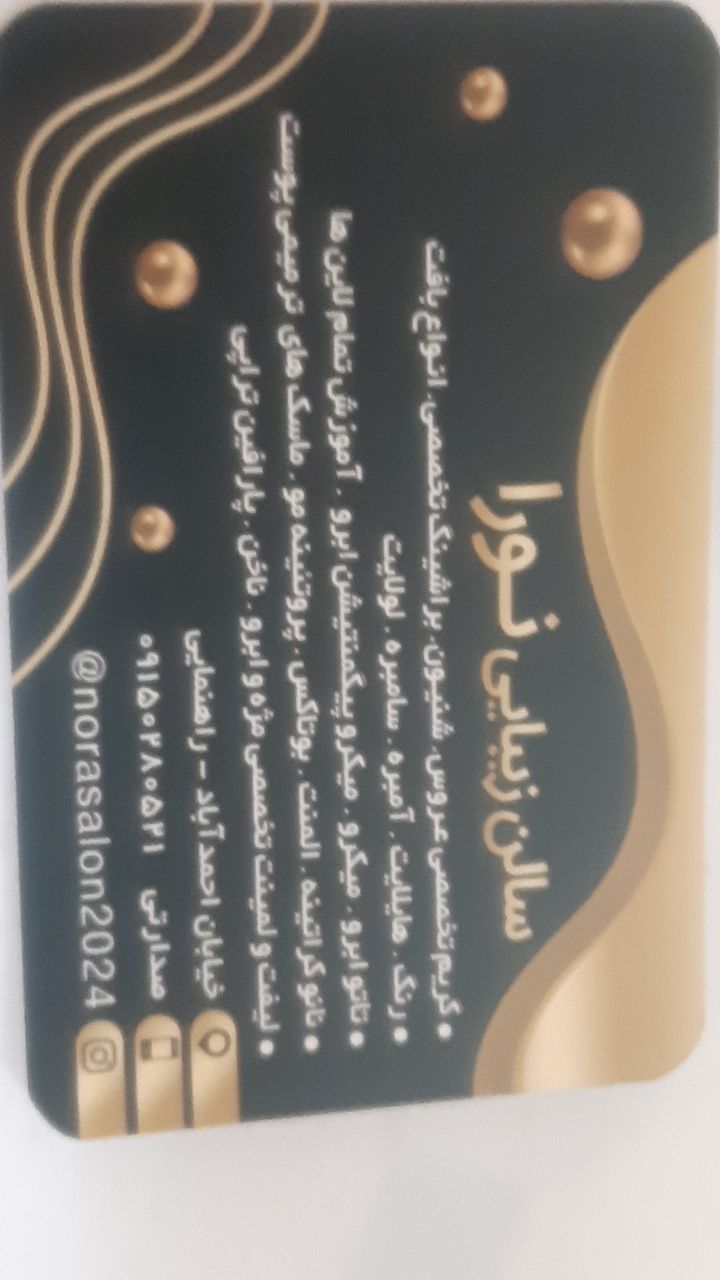 سالن زیبایی نورا
• گریم تخصصی عروس. شنیون. براشینگ تخصصی. انواع بافت
• رنگ. هایلایت. آمبره. سامبره. لولایت
• تاتو ابرو. میکرو. میکرو پیگمنتیشن ابرو. آموزش تمام لاین ها
• نانو کراتینه. المنت. بوتاکس. پروتئینه مو. ماسک های ترمیمی پوست
• لیفت و لمینت تخصصی مژه و ابرو. ناخن. پارافین تراپی
خیابان احمد آباد - راهنمایی
۰۹۱۵۰۲۸۰۵۲۱ صدارتی
@norasalon2024